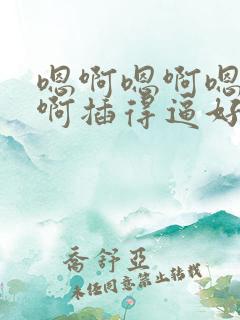 嗯啊嗯啊嗯
啊插得逼好
喬舒亞
未经同意禁止转载